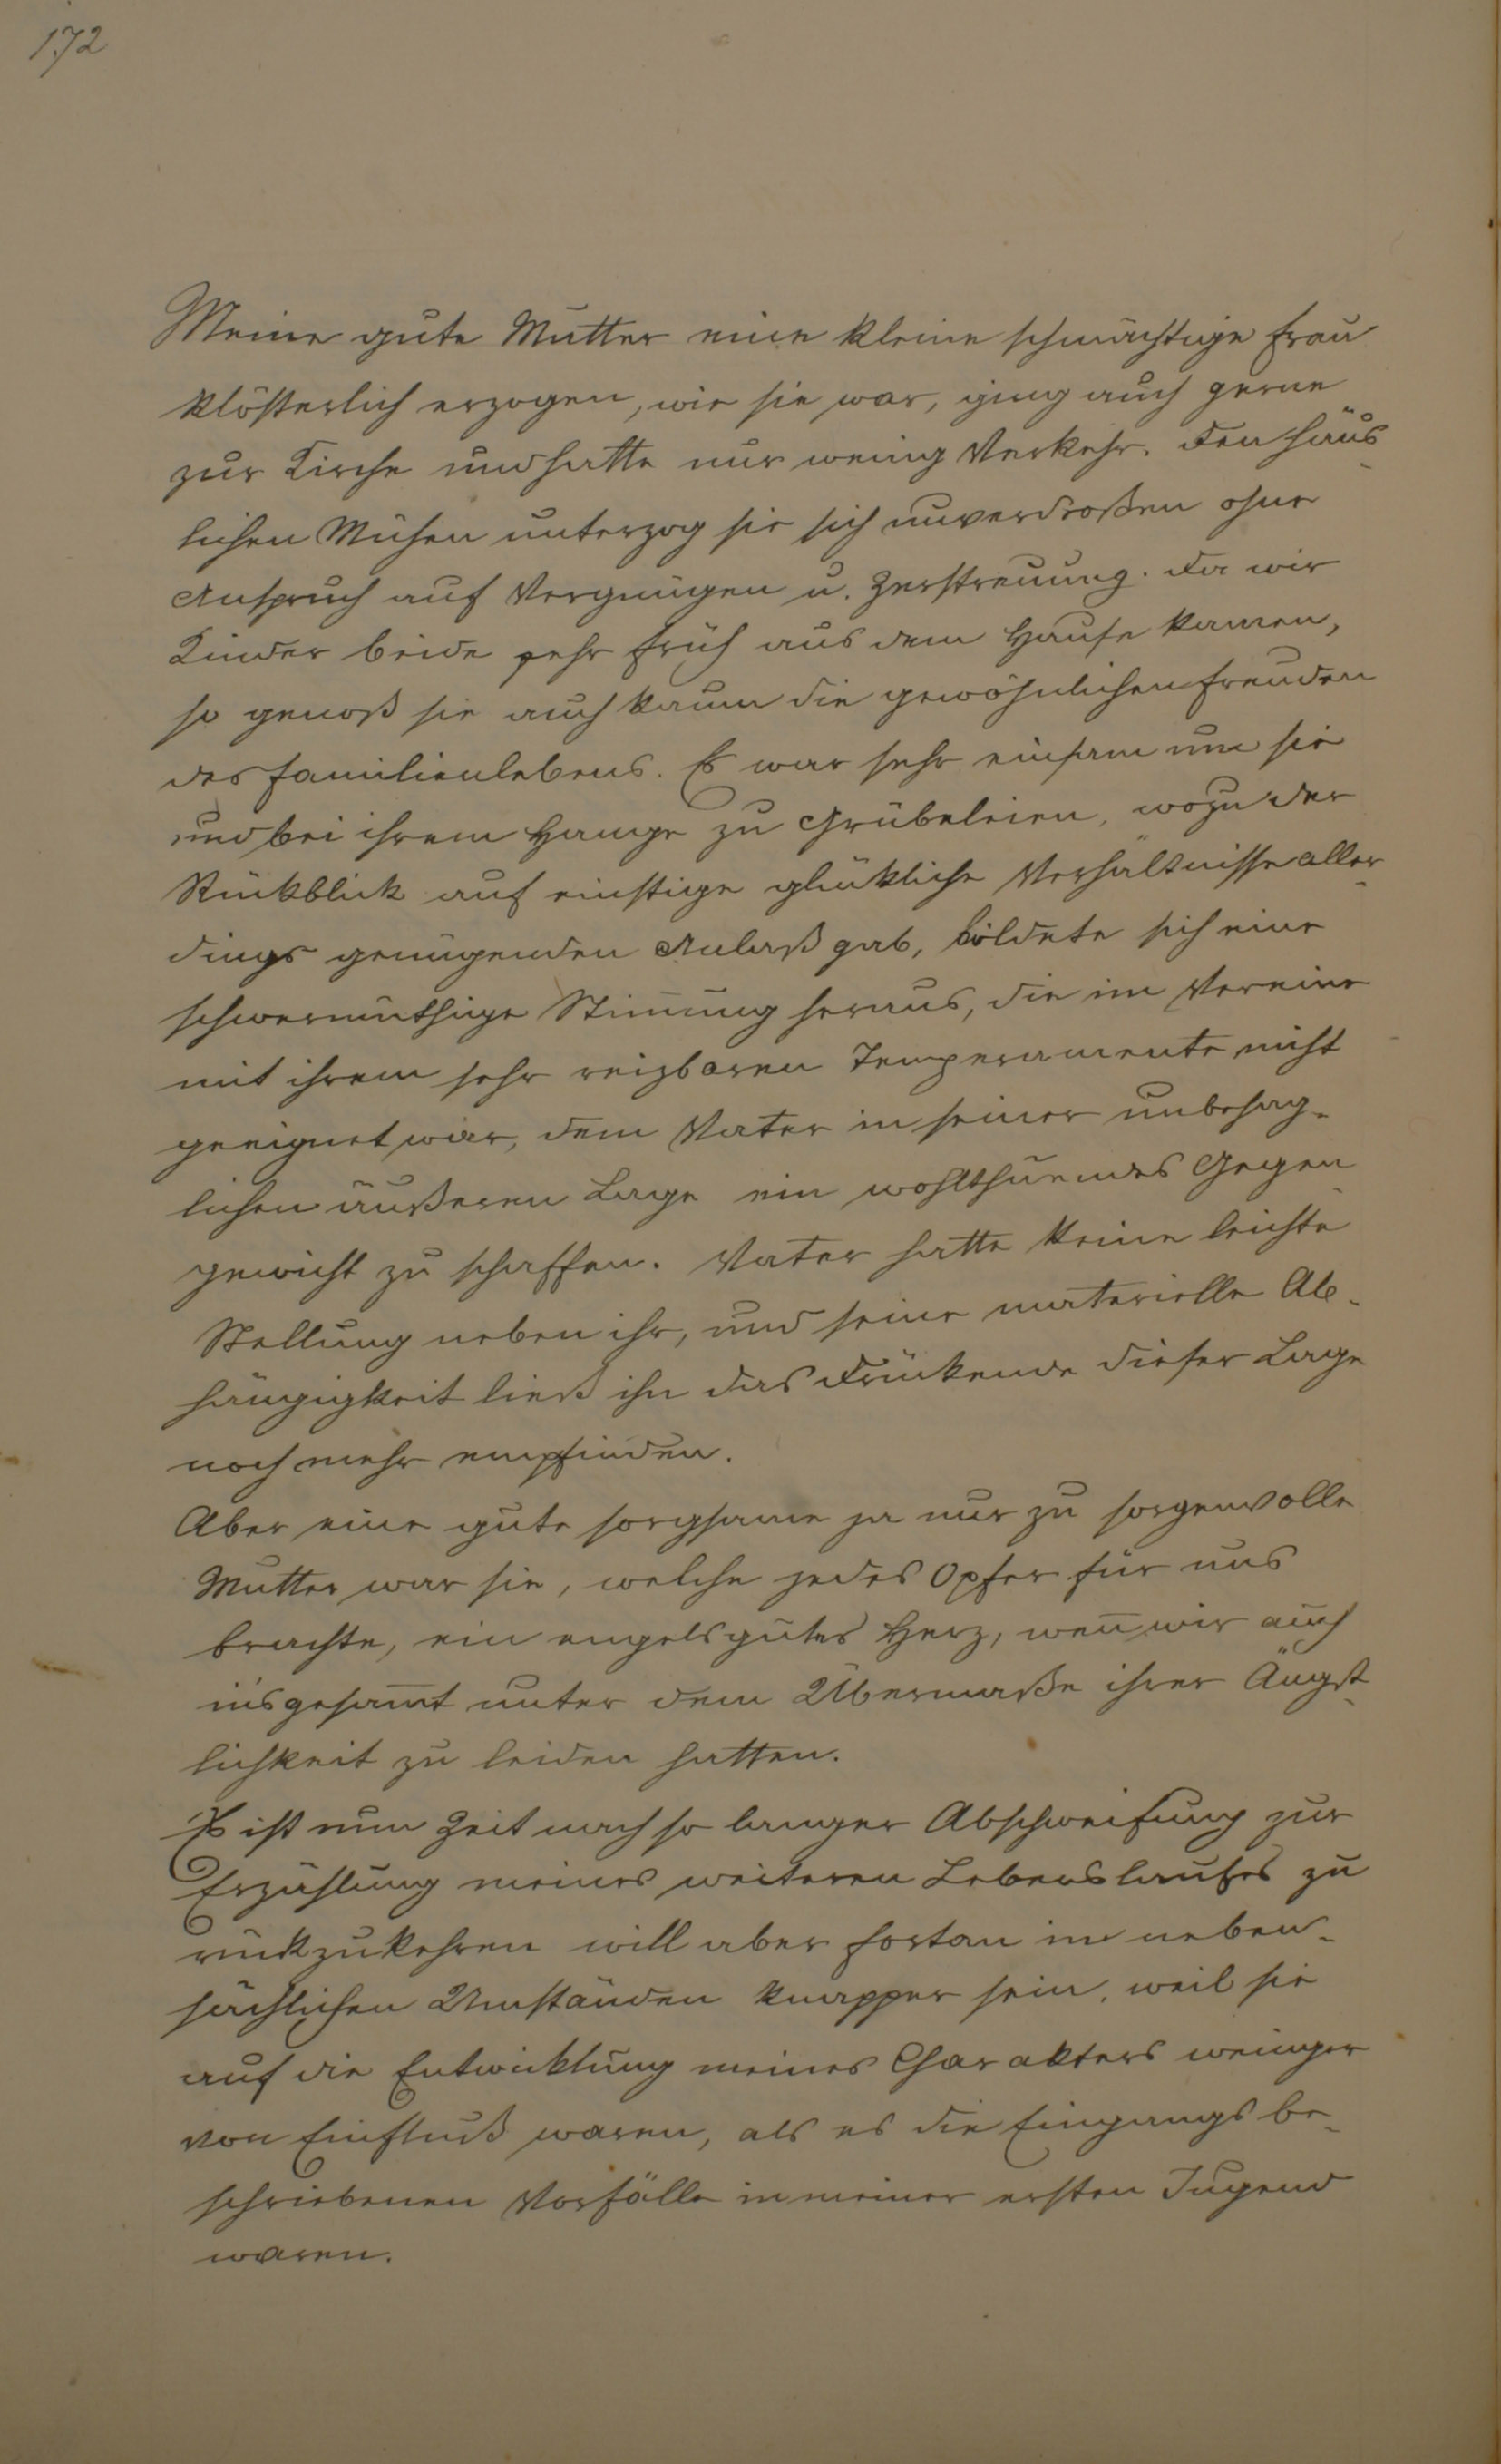 172
Meine gute Mutter eine kleine schmächtige Frau
klösterlich erzogen, wie sie war, ging auch gerne
zur Kirche und hatte nur wenig Verkehr. Den häus-
lichen Mühen unterzog sie sich unverdroßen ohne
Anspruch auf Vergnügen u. Zerstreuung. Da wir
Kinder beide sehr früh aus dem Hause kamen,
so genoß sie auch kaum die gewöhnlichen Freuden
des Familienlebens. Es war sehr einsam um sie
und bei ihrem Hange zu Grübeleien, wozu der
Rückblick auf einstige glückliche Verhältnisse aller-
dings genügenden Anlaß gab, bildete sich eine
schwermüthige Stim̄ung heraus, die im Vereine
mit ihrem sehr reizbaren Temperamente nicht
geeignet war, dem Vater in seiner unbehag-
lichen äußeren Lage ein wohlthuendes Gegen-
gewicht zu schaffen. Vater hatte keine leichte
Stellung neben ihr, und seine materielle Ab-
hängigkeit ließ ihn das Drückende dieser Lage
noch mehr empfinden.
Aber eine gute sorgsame ja nur zu sorgenvolle
Mutter war sie, welche jedes Opfer für uns
brachte, ein engelsgutes Herz, wen̄ wir auch
insgesam̄t unter dem Übermaße ihrer Ängst-
lichkeit zu leiden hatten.
Es ist nun Zeit nach so langer Abschweifung zur
Erzählung meines weiteren Lebenslaufes zu
rückzukehren will aber fortan in neben-
sächlichen Umständen knapper sein, weil sie
auf die Entwicklung meines Charakters weniger
von Einfluß waren, als es die Eingangs be-
schriebenen Vorfälle in meiner ersten Jugend
waren.